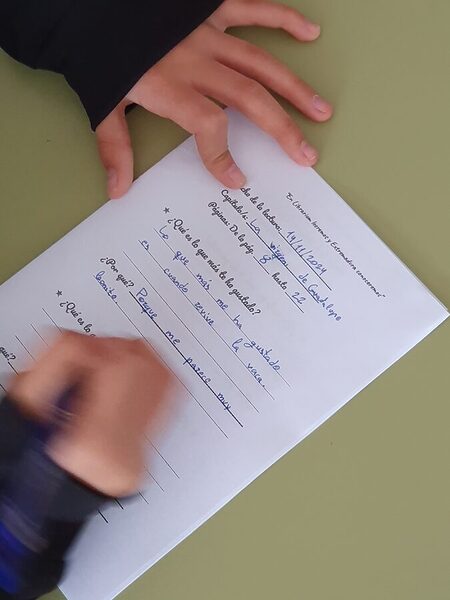 "En Cáñamero leemos y Extremadura conocemos"
cha de la lectura: 14/11/2024
Capítulo/s: La virgen de Guadalupe
Páginas: De la pág. 8 hasta 22
★ ¿Qué es lo que más te ha gustado?
Lo que más me ha gustado
es cuando revive la vaca.
¿Por qué? Porque me parece muy
bonito
★ ¿Qué es lo
qué?